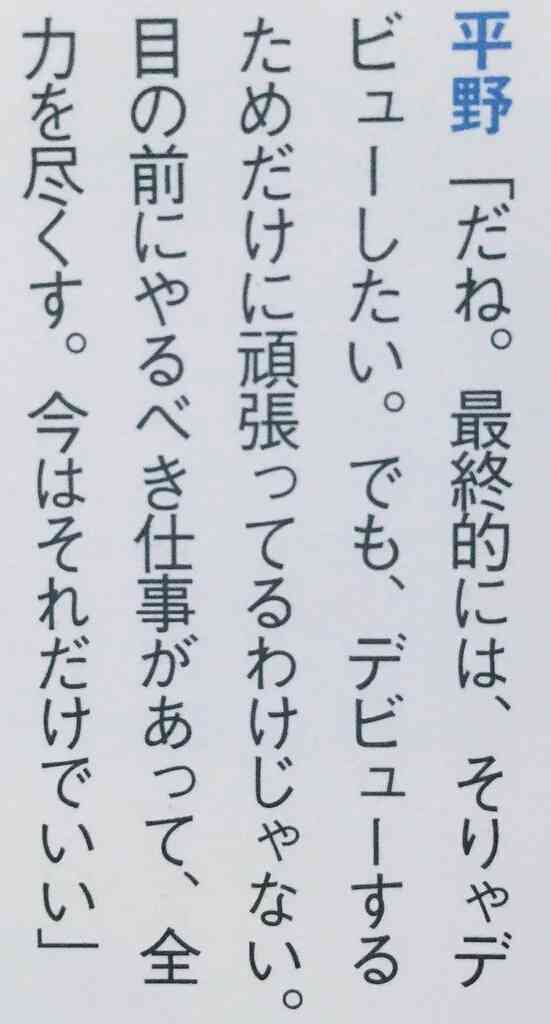 平野「だね。最終的には、そりゃデ
ビューしたい。でも、デビューする
ためだけに頑張ってるわけじゃない。
目の前にやるべき仕事があって、全
力を尽くす。今はそれだけでいい」